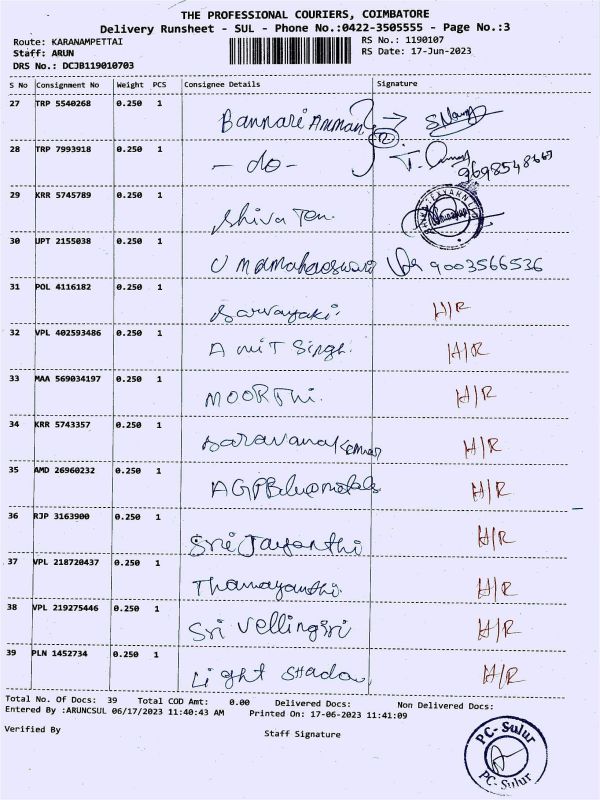 THE PROFESSIONAL COURIERS, COIMBATORE
Delivery Runsheet - SUL - Phone No.:0422-3505555 - Page No.:3
Route: KARANAMPETTAI RS No.: 1190107
Staff: ARUN RS Date: 17-Jun-2023
DRS No.: DCJB119010703
S No Consignment No Weight PCS Consignee Details Signature
27 TRP 5540268 0.250 1 Bannari Amman
28 TRP 7993918 0.250 1 - do - T.
29 KRR 5745789 0.250 1 Shiva Tex
30 UPT 2155038 0.250 1 Umamahaeswari 9003566536
31 POL 4116182 0.250 1 Sarvayaki. H/R
32 VPL 402593486 0.250 1 Amit Singh. H/R
33 MAA 569034197 0.250 1 MOORTHi. H/R
34 KRR 5743357 0.250 1 Saravanakumar H/R
35 AMD 26960232 0.250 1 AGPBluemetals H/R
36 RJP 3163900 0.250 1 Sri Jayanthi H/R
37 VPL 218720437 0.250 1 Thamayanthi. H/R
38 VPL 219275446 0.250 1 Sri Vellingiri H/R
39 PLN 1452734 0.250 1 Light Shadow H/R
Total No. Of Docs: 39 Total COD Amt: 0.00 Delivered Docs: Non Delivered Docs:
Entered By :ARUNCSUL 06/17/2023 11:40:43 AM Printed On: 17-06-2023 11:41:09
Verified By Staff Signature
PC- Sulur
PC- Sulur